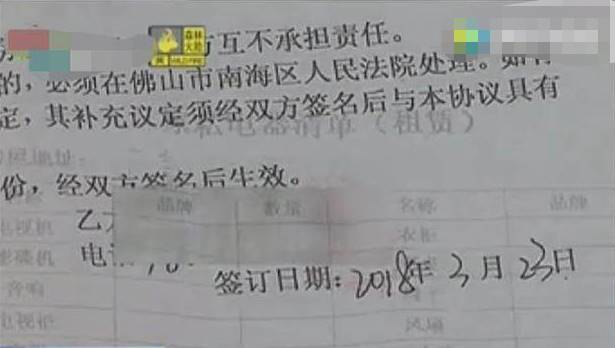 方互不承担责任。
的，必须在佛山市南海区人民法院处理。如有
定，其补充议定须经双方签名后与本协议具有
电器清单（租赁）
份，经双方签名后生效。
品牌 数量 名称 品牌
电视机 乙方 衣柜
影碟机 电话
签订日期：2018年3月23日
音响
电视柜 风扇